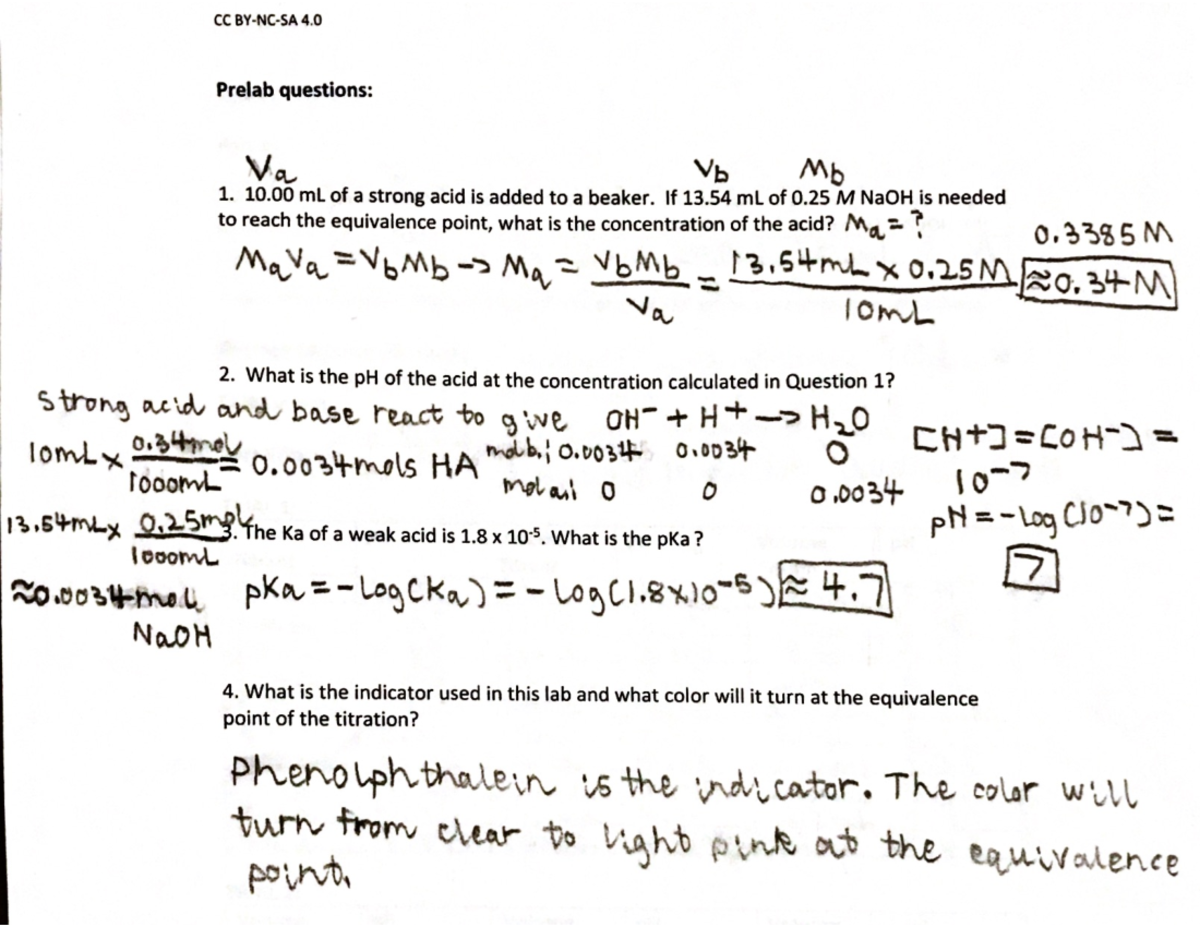 CC BY-NC-SA 4.0
Prelab questions:
Va Vb Mb
1. 10.00 mL of a strong acid is added to a beaker. If 13.54 mL of 0.25 M NaOH is needed
to reach the equivalence point, what is the concentration of the acid? Ma = ?
MaVa = VbMb -> Ma = VbMb / Va = 13.54mL x 0.25M / 10mL
0.3385 M
≈0.34 M
2. What is the pH of the acid at the concentration calculated in Question 1?
strong acid and base react to give OH⁻ + H⁺ -> H₂O
10mL x 0.34mol / 1000mL = 0.0034mols HA
mol b.; 0.0034 0.0034 0
mol ai 0 0 0.0034
[H+] = [OH⁻] =
10⁻⁷
pH = -log (10⁻⁷) =
7
13.54mL x 0.25mol / 1000mL
≈0.0034 mol
NaOH
3. The Ka of a weak acid is 1.8 x 10⁻⁵. What is the pKa ?
pKa = -log(Ka) = -log(1.8x10⁻⁵) ≈ 4.7
4. What is the indicator used in this lab and what color will it turn at the equivalence
point of the titration?
Phenolphthalein is the indicator. The color will
turn from clear to light pink at the equivalence
point.